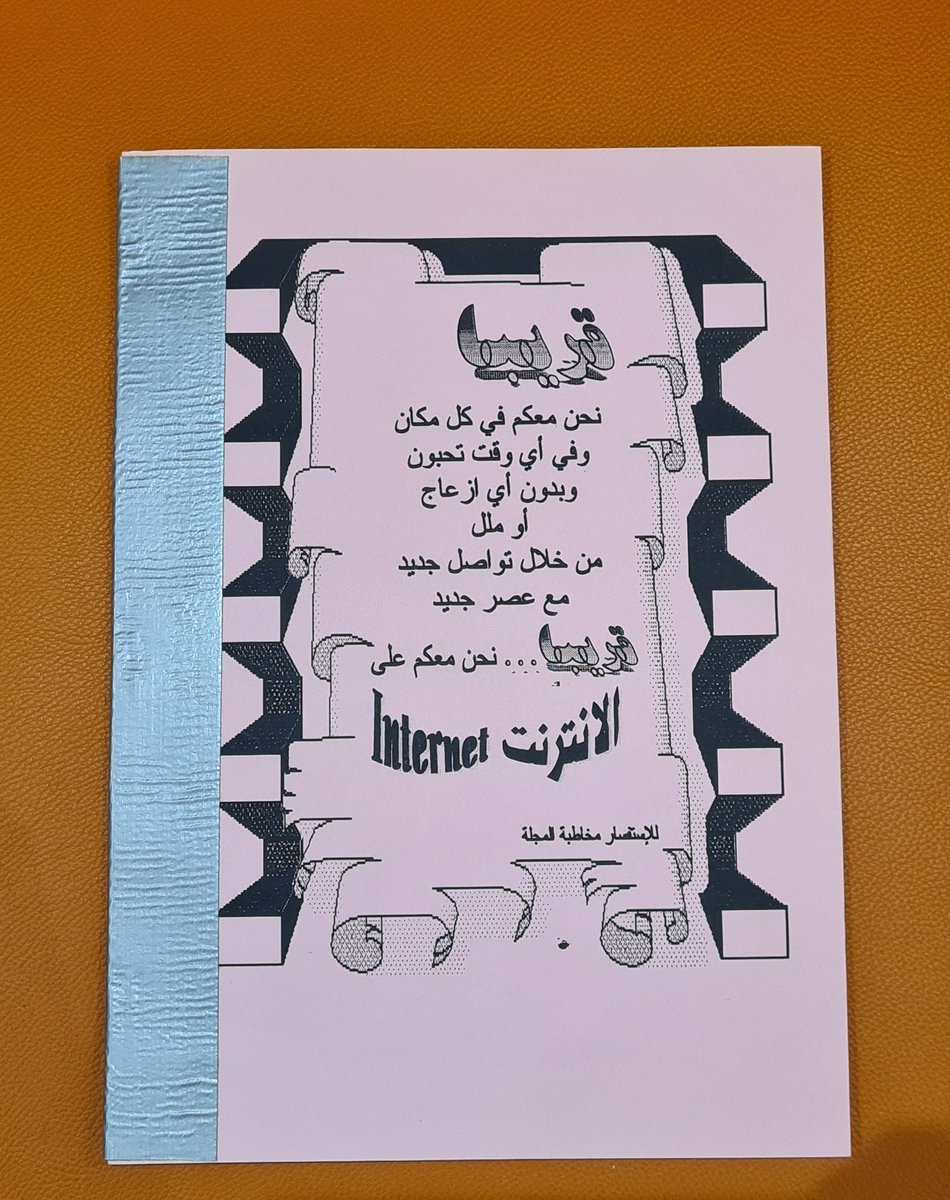 قريبا
نحن معكم في كل مكان
وفي أي وقت تحبون
وبدون أي ازعاج
أو ملل
من خلال تواصل جديد
مع عصر جديد
قريبا ... نحن معكم على
الانترنت Internet
للإستفسار مخاطبة المجلة